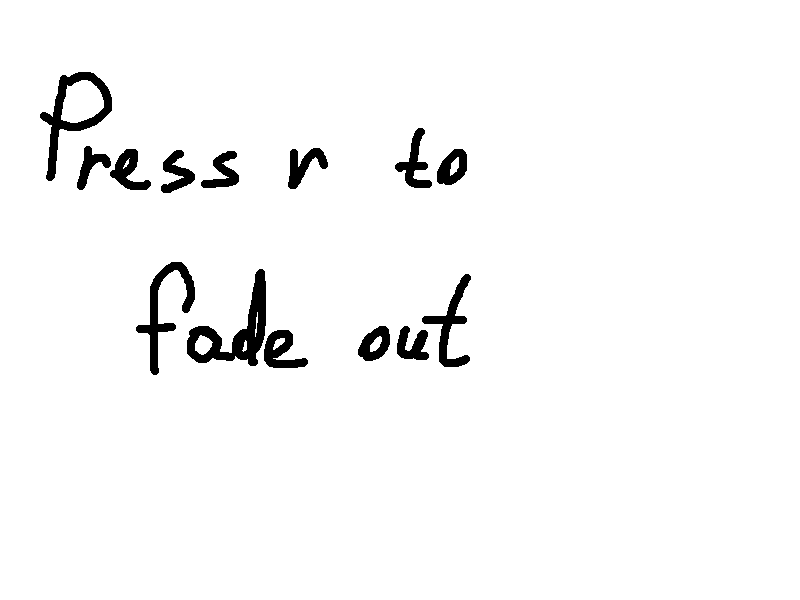 Press r to
fade out